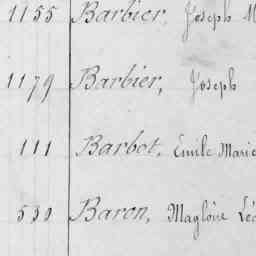 1155 Barbier, Joseph M
1179 Barbier, Joseph
111 Barbot, Emile Marie
530 Baron, Magloire Léo